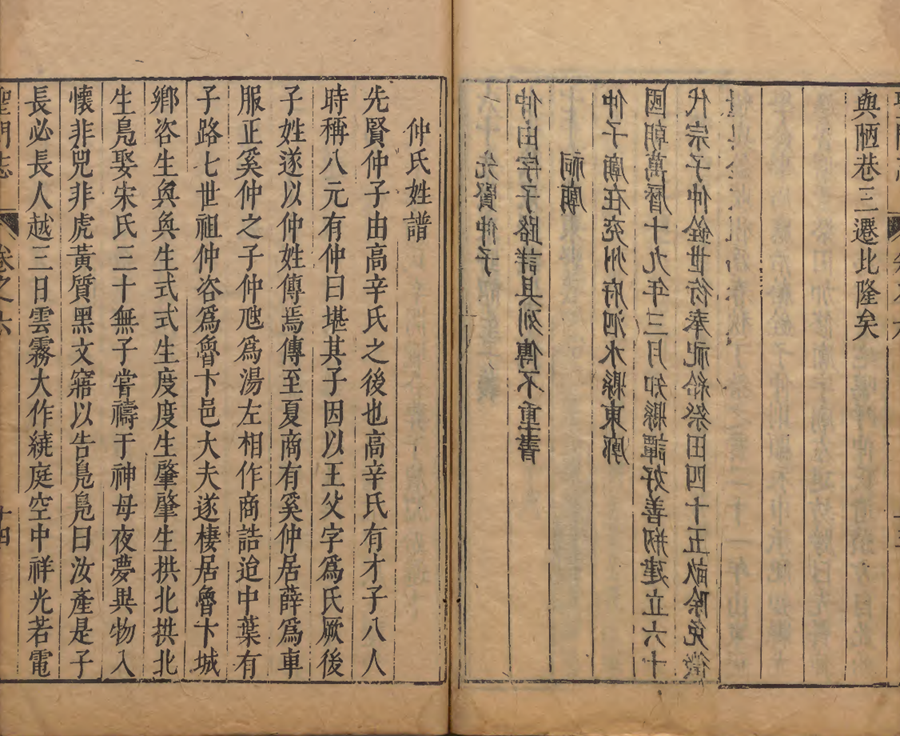 與陋巷三遷比隆矣
先賢仲子
仲由字子路詳具列傳不重書
祠廟
仲子廟在兗州府泗水縣東廓
國朝萬曆十九年三月知縣譚好善剏建立六十
代宗子仲銓世衍奉祀給祭田四十五畝除免徵
仲氏姓譜
先賢仲子由高辛氏之後也高辛氏有才子八人
時稱八元有仲曰堪其子因以王父字爲氏厥後
子姓遂以仲姓傳焉傳至夏商有奚仲居薛爲車
服正奚仲之子仲虺爲湯左相作商誥迨中葉有
子路七世祖仲咨爲魯卞邑大夫遂棲居魯卞城
鄉咨生與與生式式生度度生肇肇生拱北拱北
生鳧娶宋氏三十無子嘗禱于神母夜夢異物入
懷非兕非虎黃質黑文寤以告鳧鳧曰汝產是子
長必長人越三日雲霧大作繞庭空中祥光若電
聖門志 卷之六 十四